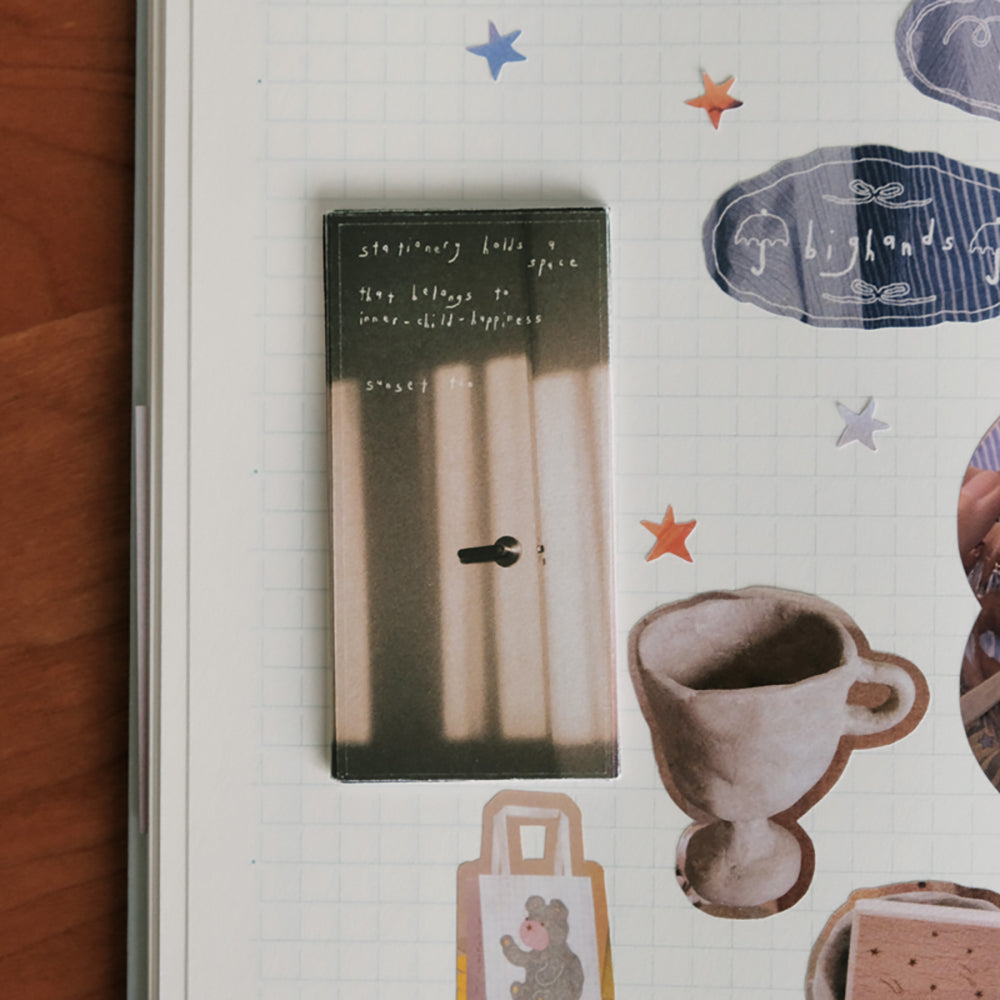 stationery holds a
space
that belongs to
inner-child-happiness
sunset
bighands